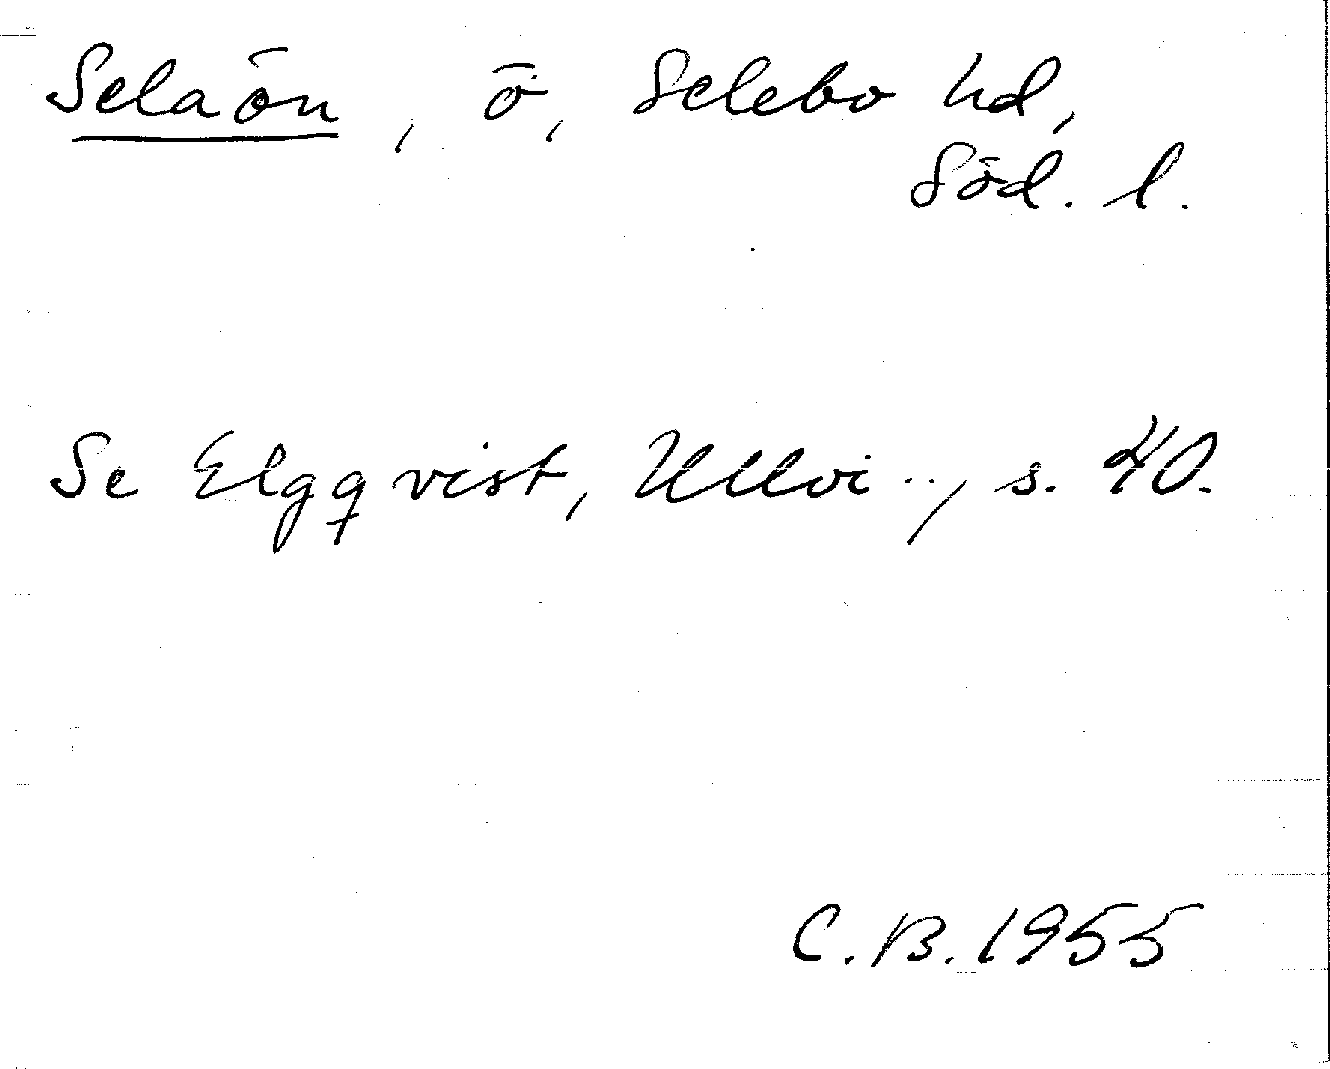 Selaön, ö, Selebo hd,
Söd. l.
Se Elgqvist, Ullvi.., s. 40.
C.B. 1955